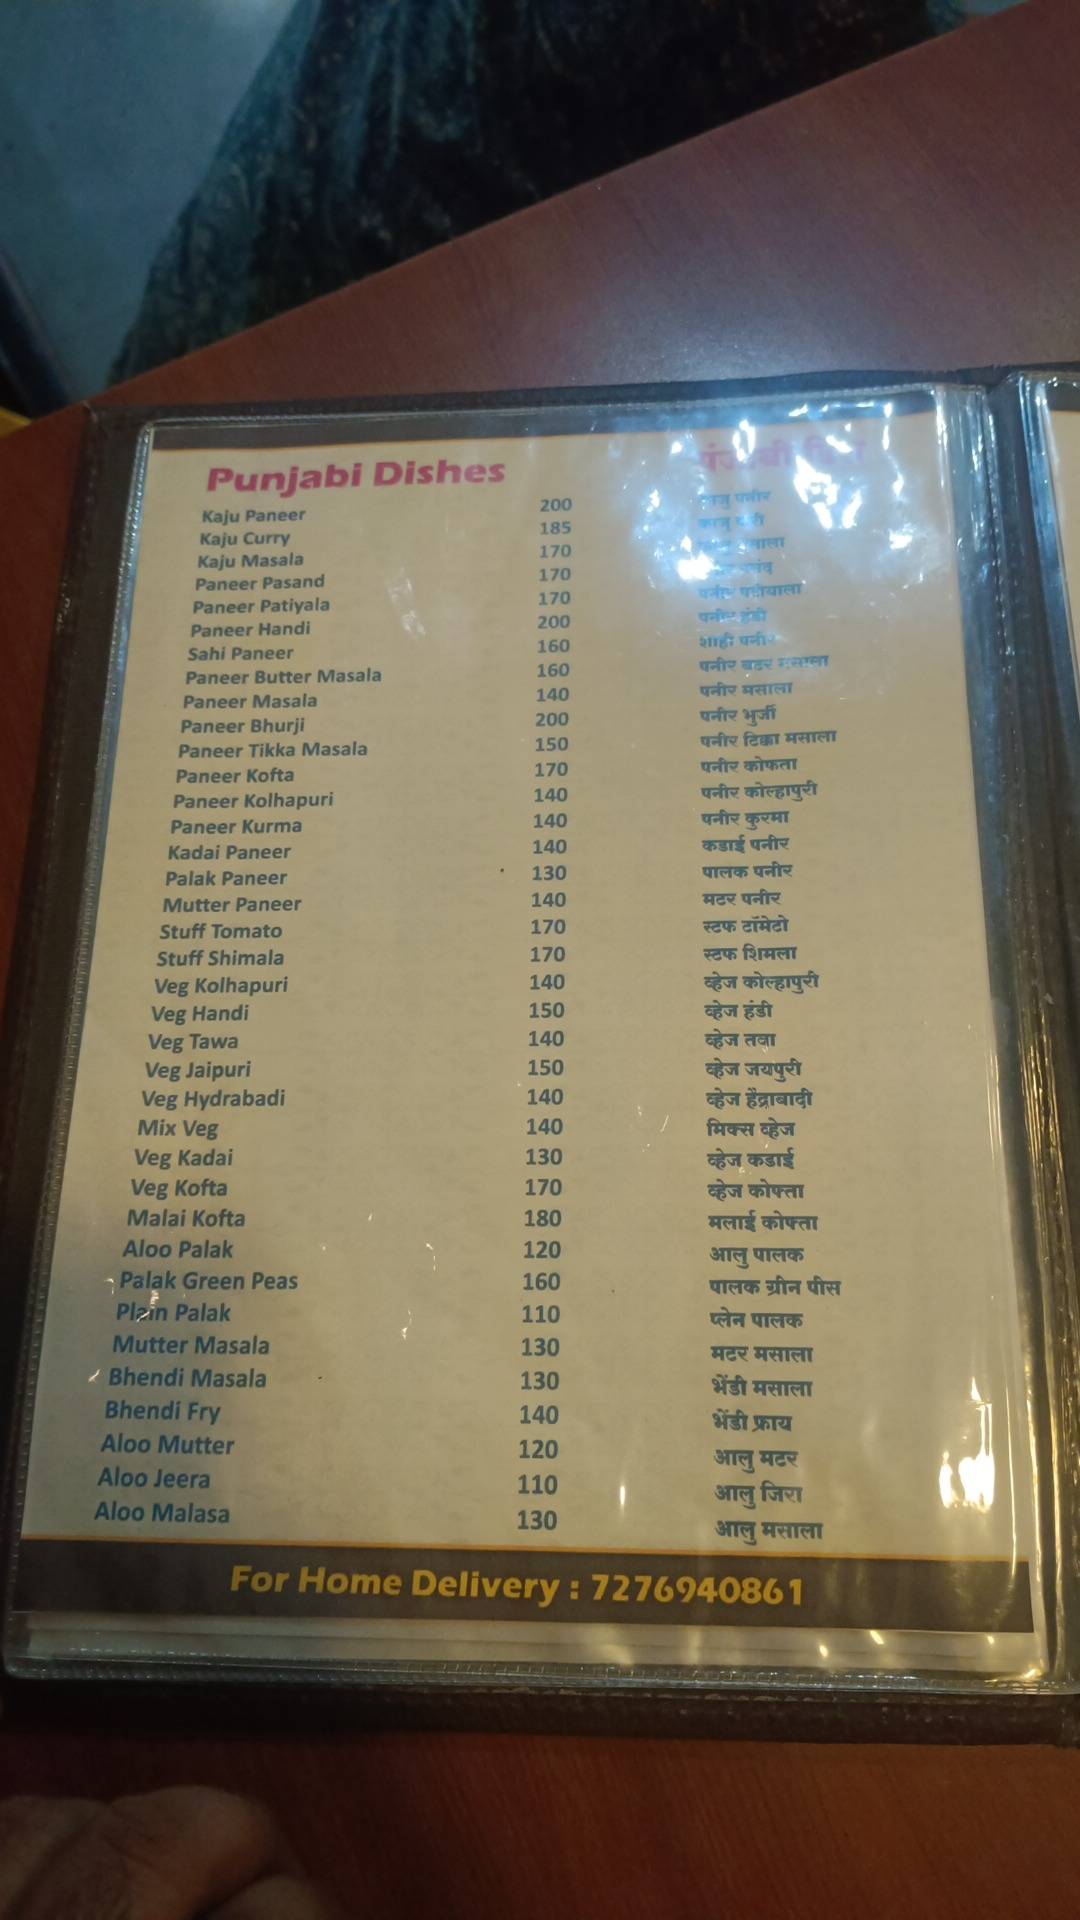 Punjabi Dishes
Kaju Paneer 200 पनीर
Kaju Curry 185
Kaju Masala 170
Paneer Pasand 170
Paneer Patiyala 170 पनीर पटीयाला
Paneer Handi 200 पनीर हंडी
Sahi Paneer 160 शाही पनीर
Paneer Butter Masala 160 पनीर बटर मसाला
Paneer Masala 140 पनीर मसाला
Paneer Bhurji 200 पनीर भुर्जी
Paneer Tikka Masala 150 पनीर टिक्का मसाला
Paneer Kofta 170 पनीर कोफता
Paneer Kolhapuri 140 पनीर कोल्हापुरी
Paneer Kurma 140 पनीर कुरमा
Kadai Paneer 140 कडाई पनीर
Palak Paneer 130 पालक पनीर
Mutter Paneer 140 मटर पनीर
Stuff Tomato 170 स्टफ टॉमेटो
Stuff Shimala 170 स्टफ शिमला
Veg Kolhapuri 140 व्हेज कोल्हापुरी
Veg Handi 150 व्हेज हंडी
Veg Tawa 140 व्हेज तवा
Veg Jaipuri 150 व्हेज जयपुरी
Veg Hydrabadi 140 व्हेज हैद्राबादी
Mix Veg 140 मिक्स व्हेज
Veg Kadai 130 व्हेज कडाई
Veg Kofta 170 व्हेज कोफ्ता
Malai Kofta 180 मलाई कोफ्ता
Aloo Palak 120 आलु पालक
Palak Green Peas 160 पालक ग्रीन पीस
Plain Palak 110 प्लेन पालक
Mutter Masala 130 मटर मसाला
Bhendi Masala 130 भेंडी मसाला
Bhendi Fry 140 भेंडी फ्राय
Aloo Mutter 120 आलु मटर
Aloo Jeera 110 आलु जिरा
Aloo Malasa 130 आलु मसाला
For Home Delivery : 7276940861